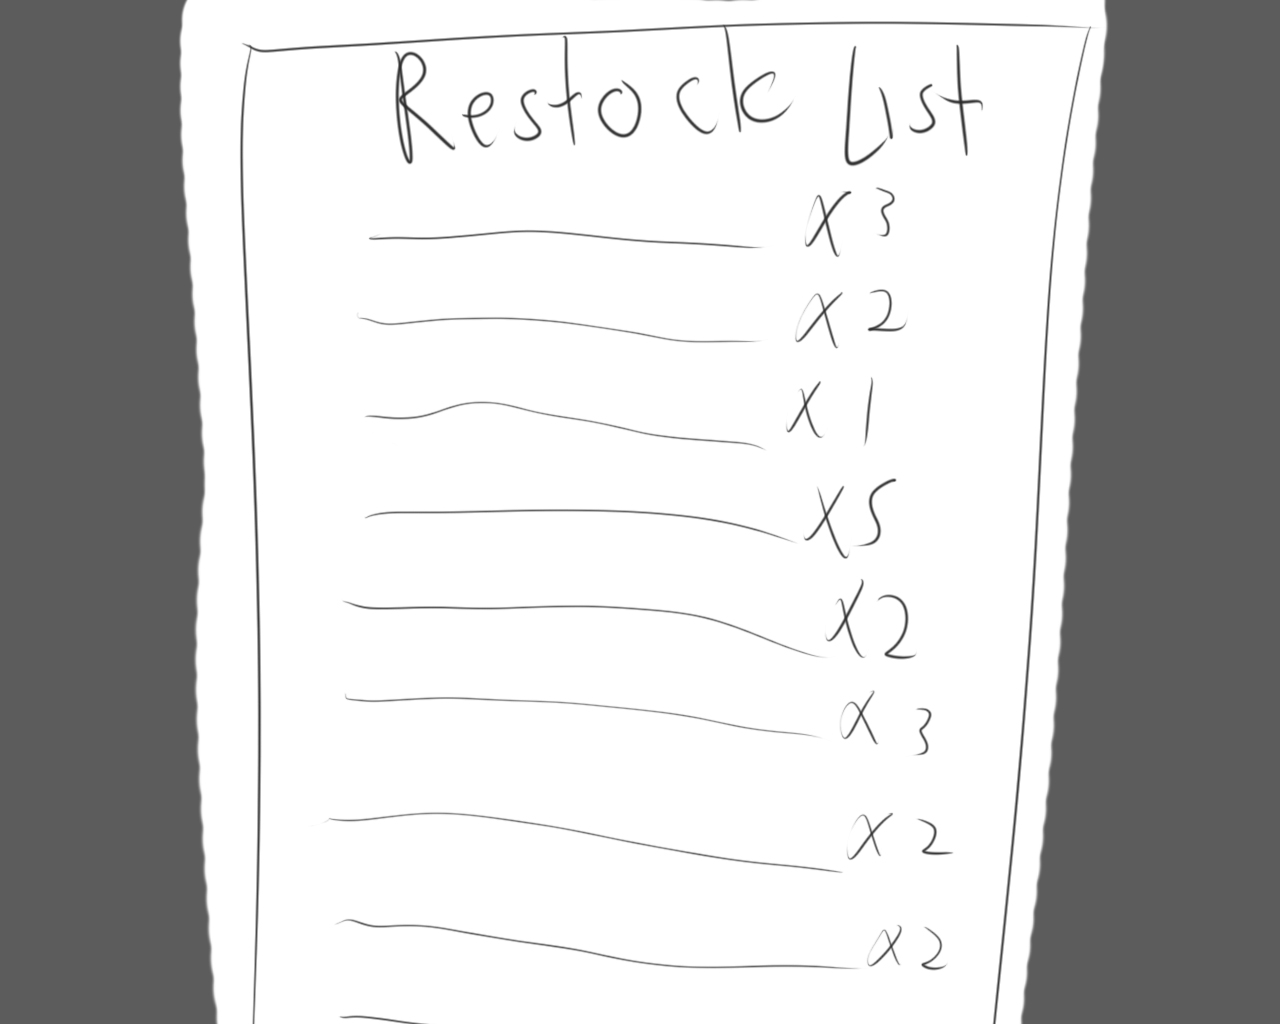 Restock List
x3
x2
x1
x5
x2
x3
x2
x2